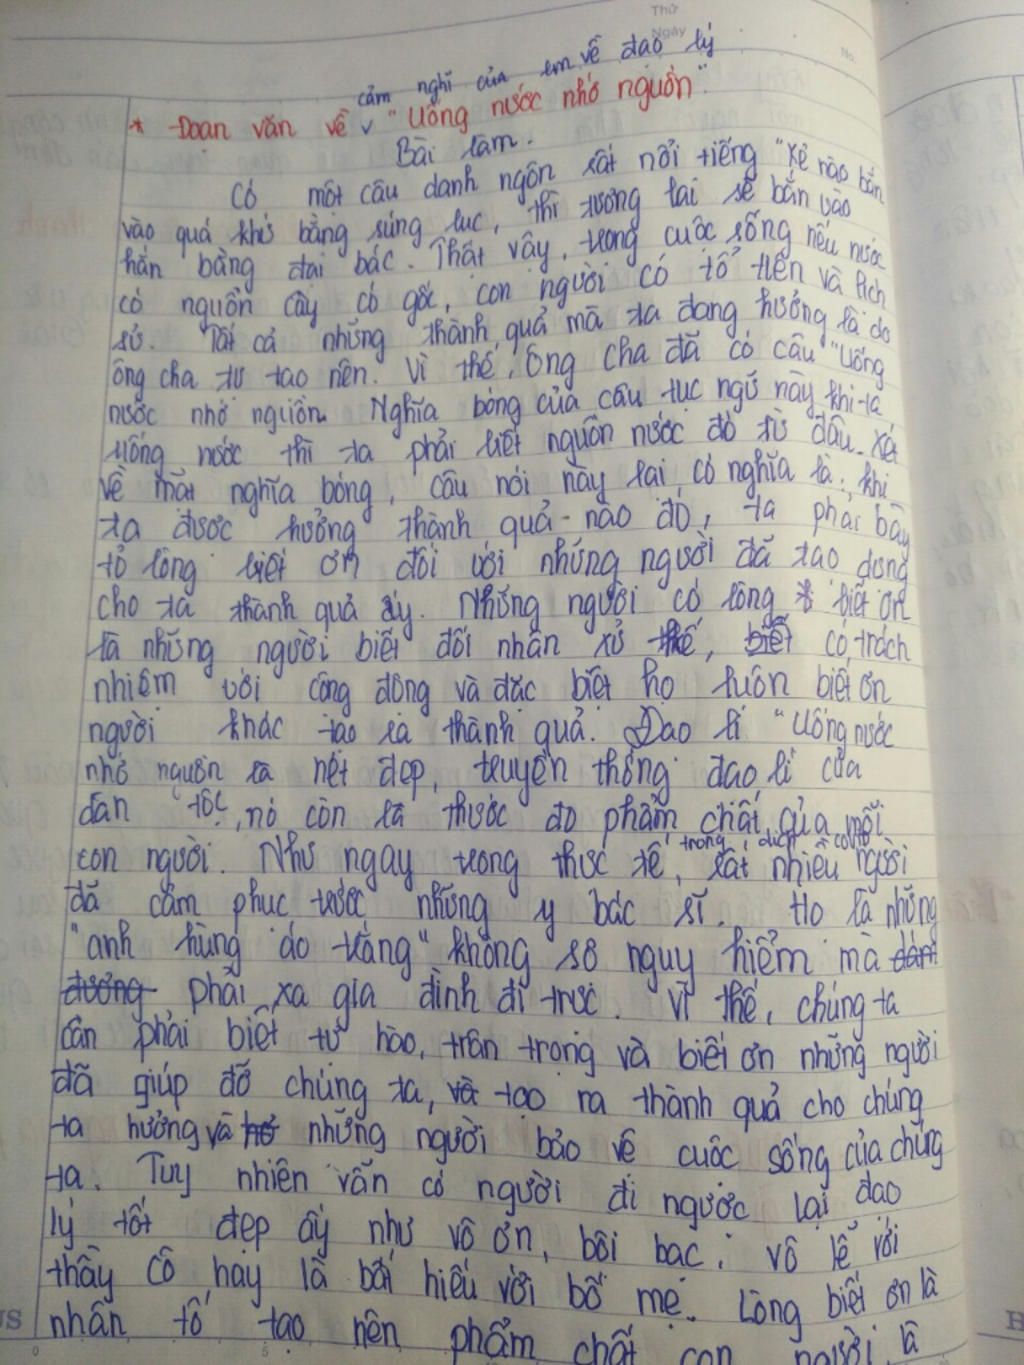 Thứ
Ngày
No.
cảm nghĩ của em về đạo lý
* Đoạn văn về v "Uống nước nhớ nguồn".
Bài làm.
Có một câu danh ngôn rất nổi tiếng "Kẻ nào bắn
vào quá khứ bằng súng lục, thì tương lai sẽ bắn vào
hắn bằng đại bác. Thật vậy, trong cuộc sống nếu nước
có nguồn cây có gốc, con người có tổ tiên và lịch
sử. Tất cả những thành quả mà ta đang hưởng là do
ông cha ta tạo nên. Vì thế, ông cha đã có câu "Uống
nước nhớ nguồn. Nghĩa bóng của câu tục ngữ này khi ta
uống nước thì ta phải biết nguồn nước đó từ đâu. Xét
về mặt nghĩa bóng, câu nói này lại có nghĩa là: khi
ta được hưởng thành quả nào đó, ta phải bày
tỏ lòng biết ơn đối với những người đã tạo dựng
cho ta thành quả ấy. Những người có lòng biết ơn
là những người biết đối nhân xử thế, biết có trách
nhiệm với cộng đồng và đặc biệt họ luôn biết ơn
người khác tạo ra thành quả. Đạo lí "Uống nước
nhớ nguồn là nét đẹp, truyền thống đạo lí của
dân tộc, nó còn là thước đo phẩm chất của mỗi
con người. Như ngay trong thực tế, trong dịch covid rất nhiều người
đã cảm phục trước những y bác sĩ. Họ là những
"anh hùng áo trắng" không sợ nguy hiểm mà
phải xa gia đình đi trực. Vì thế, chúng ta
cần phải biết tự hào, trân trọng và biết ơn những người
đã giúp đỡ chúng ta, và tạo ra thành quả cho chúng
ta hưởng và những người bảo vệ cuộc sống của chúng
ta. Tuy nhiên vẫn có người đi ngược lại đạo
lý tốt đẹp ấy như vô ơn, bội bạc, vô lễ với
thầy cô hay là bất hiếu với bố mẹ. Lòng biết ơn là
nhân tố tạo nên phẩm chất con người là